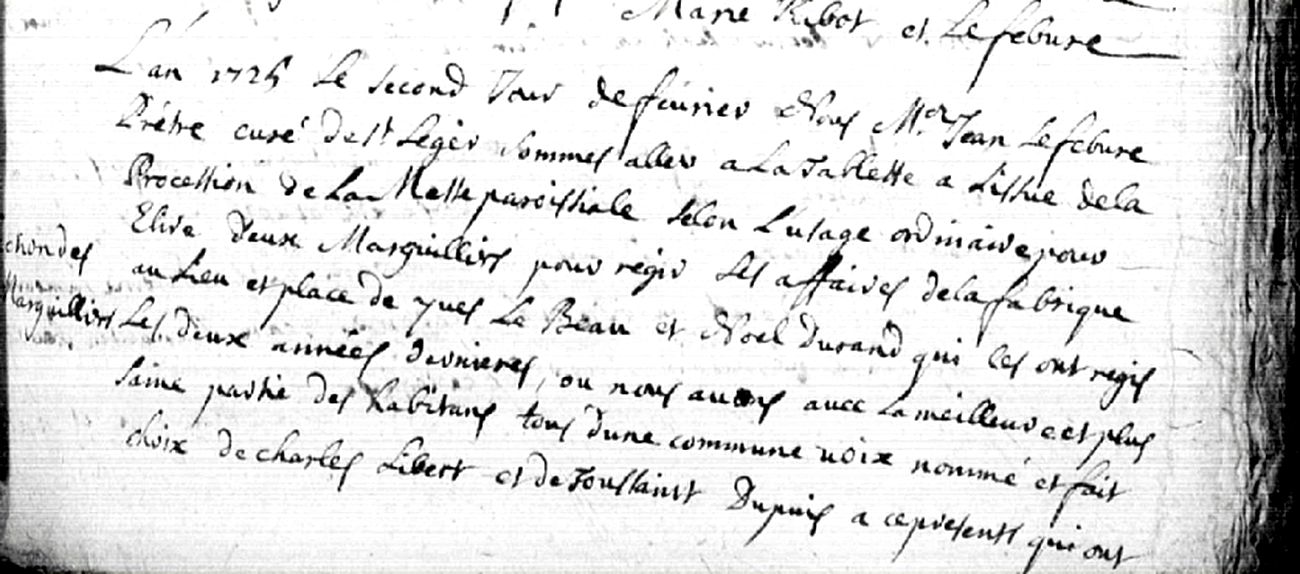 Marie Ribot et Lefebure
L'an 1725 Le second Jour de feurier Nous Me. Jean Lefebure
Prêtre curé de st Leger sommes aller a La Tablette a L'issue dela
Procession de La Messe paroissiale selon L'usage ordinaire pour
Elire deux Marguilliers pour regir Les affaires dela fabrique
chon des
Marguilliers
au Lieu et place de yues Le Beau et Noel Durand qui les ont regis
Les deux années dernieres, ou nous auons auec La meilleure et plus
saine partie des habitans tous dune commune uoix nommé et fait
choix de charles Libert et de Toussaint Dupuis a ce presents qui ont